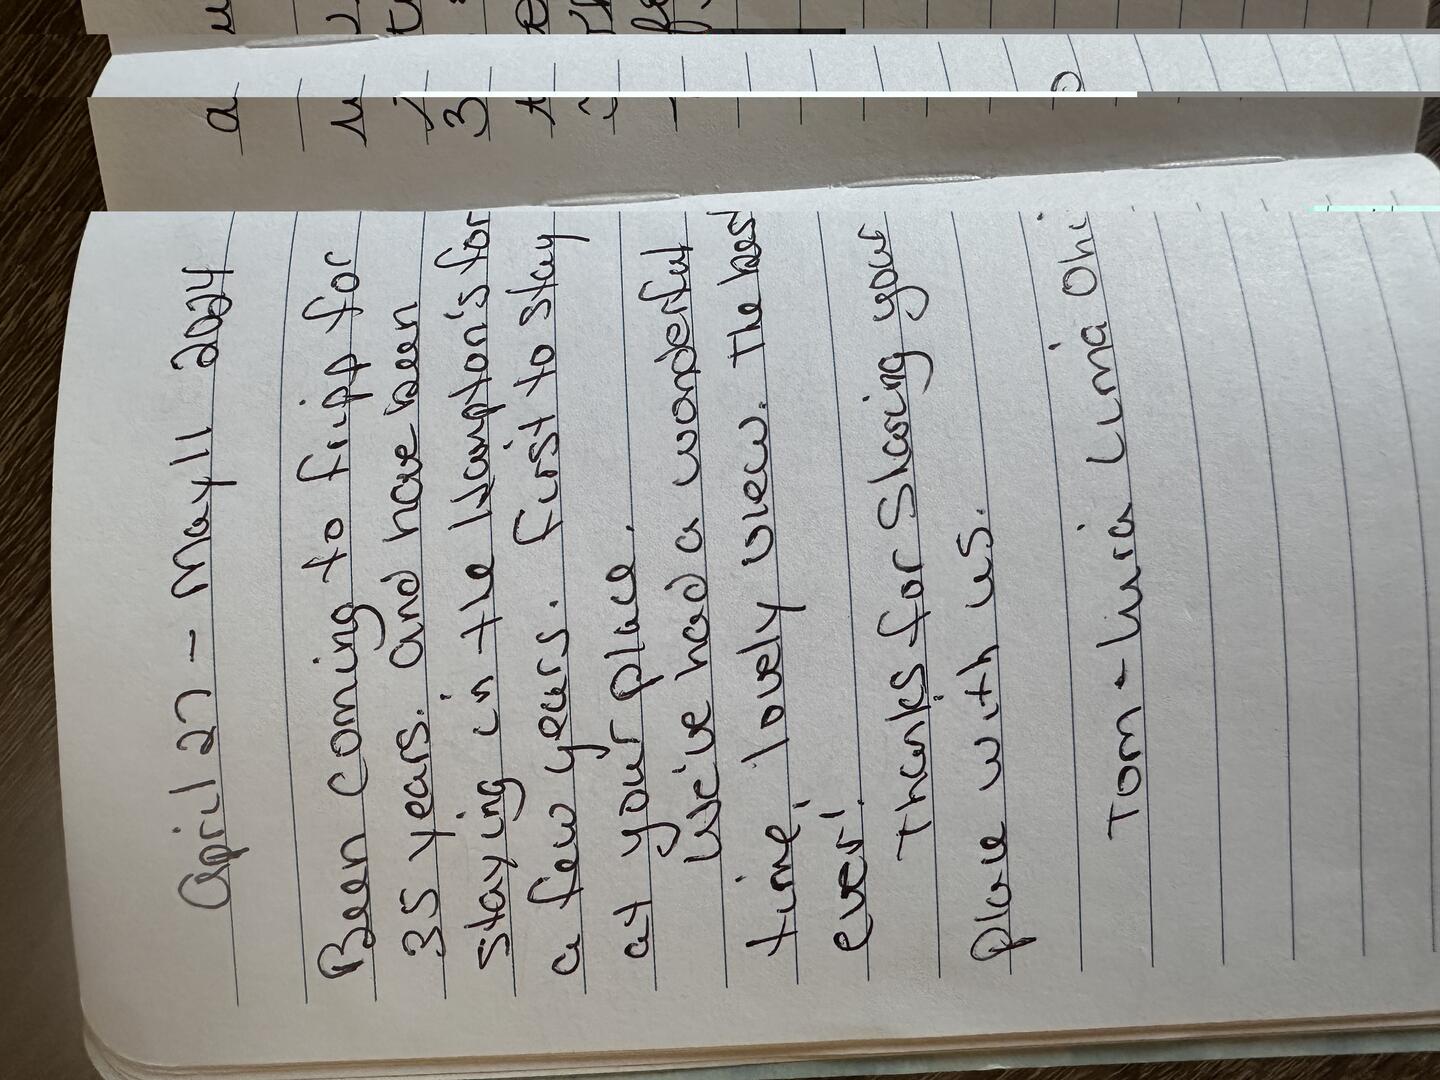 April 27 - May 11 2024
Been coming to fripp for
35 years. and have been
staying in the Hampton's for
a few years. first to stay
at your place.
We've had a wonderful
time, lovely view. The best
ever!
Thanks for Sharing your
place with us.
Tom - Luia Lima Ohi